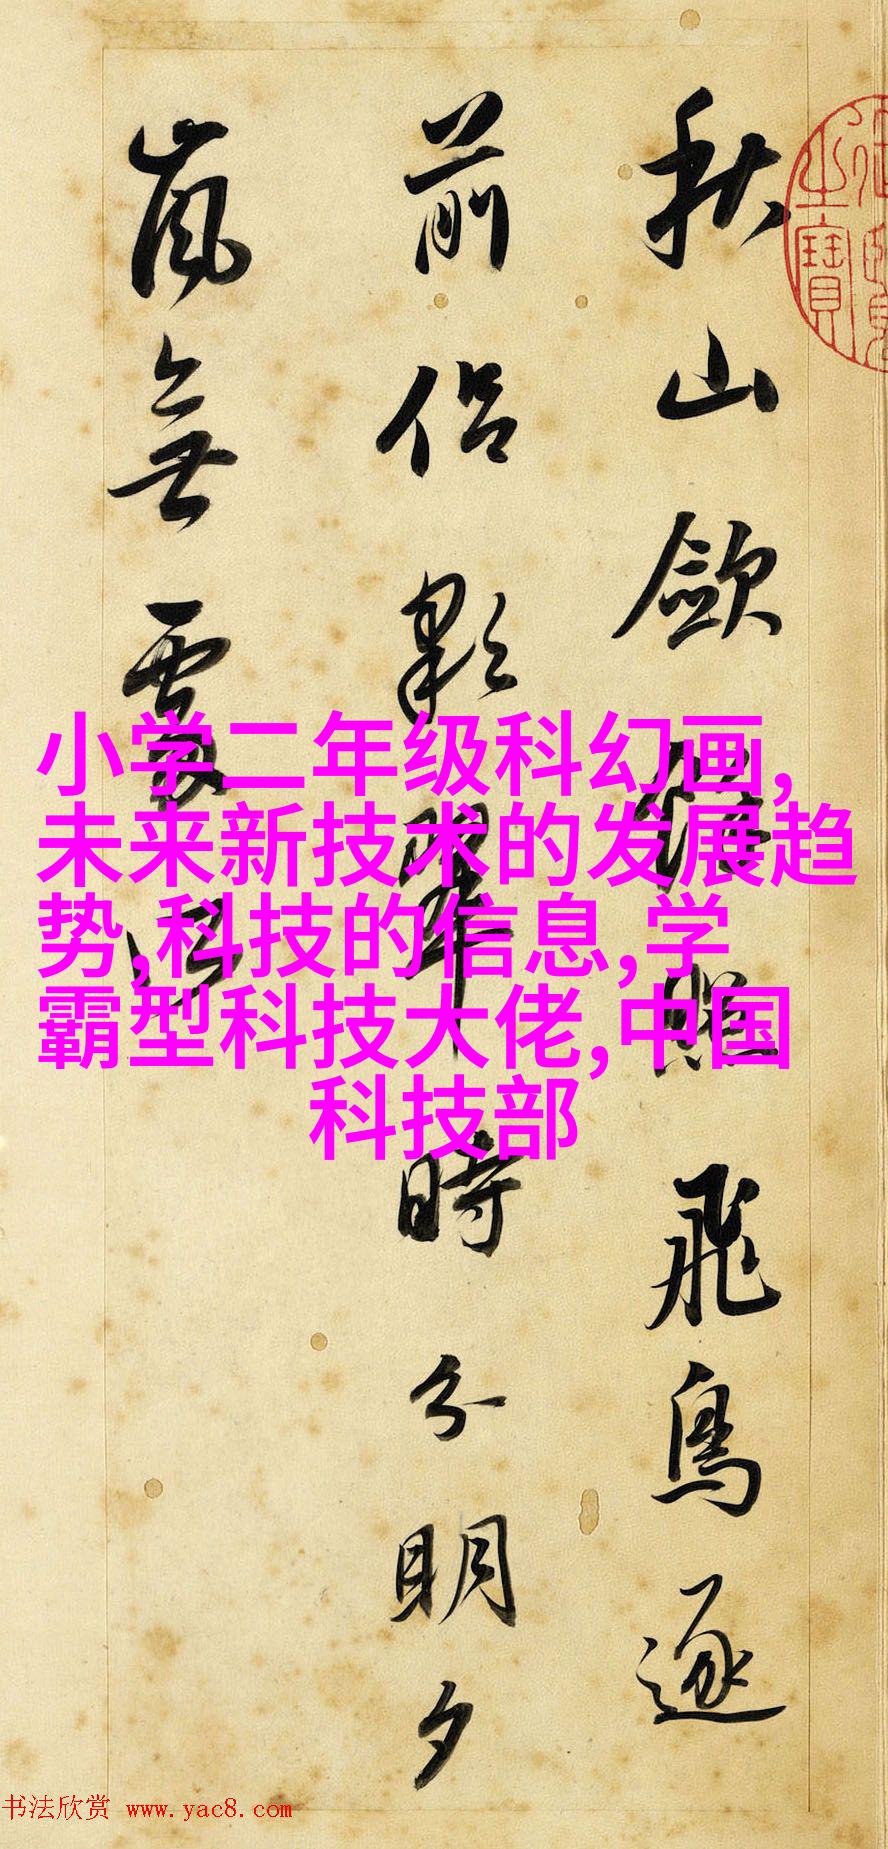 秋山歛餘照飛鳥逐
前侶彩翠時分明夕
嵐無處所
小学二年级科幻画,
未来新技术的发展趋
势,科技的信息,学
霸型科技大佬,中国
科技部
之寶
书法欣赏 www.yac8.com